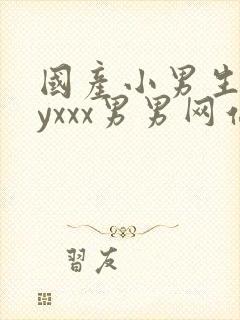 國產小男生
yxxx男男网
習友